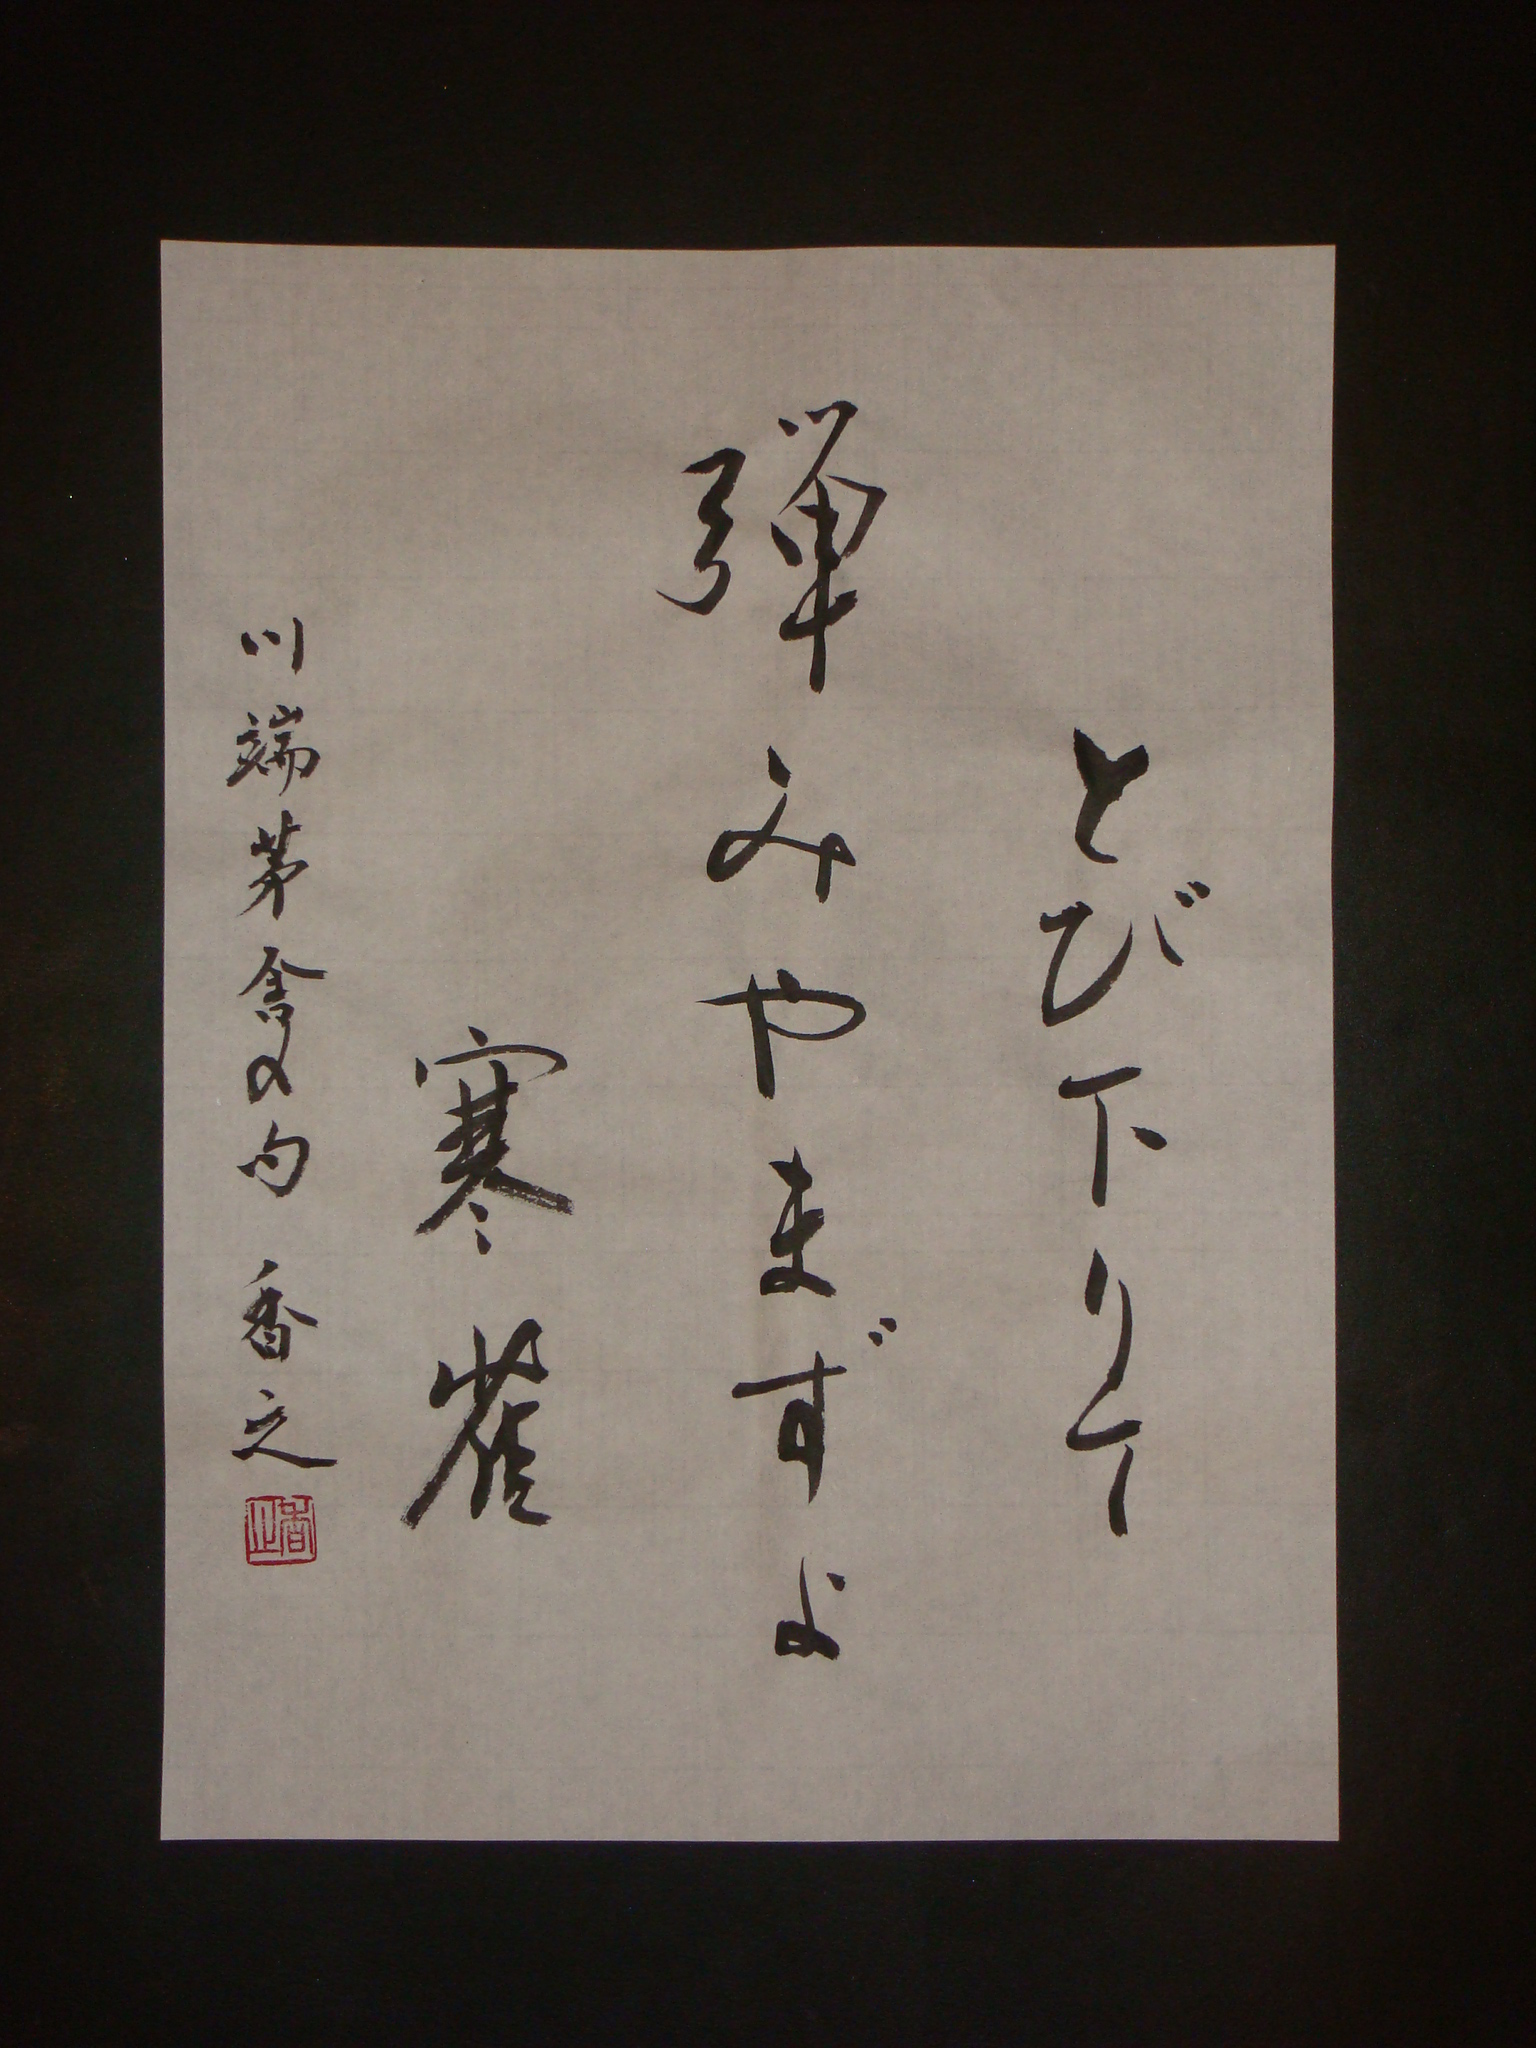 とび下りて
弾みやまずよ
寒雀
川端茅舎の句 香之
香之